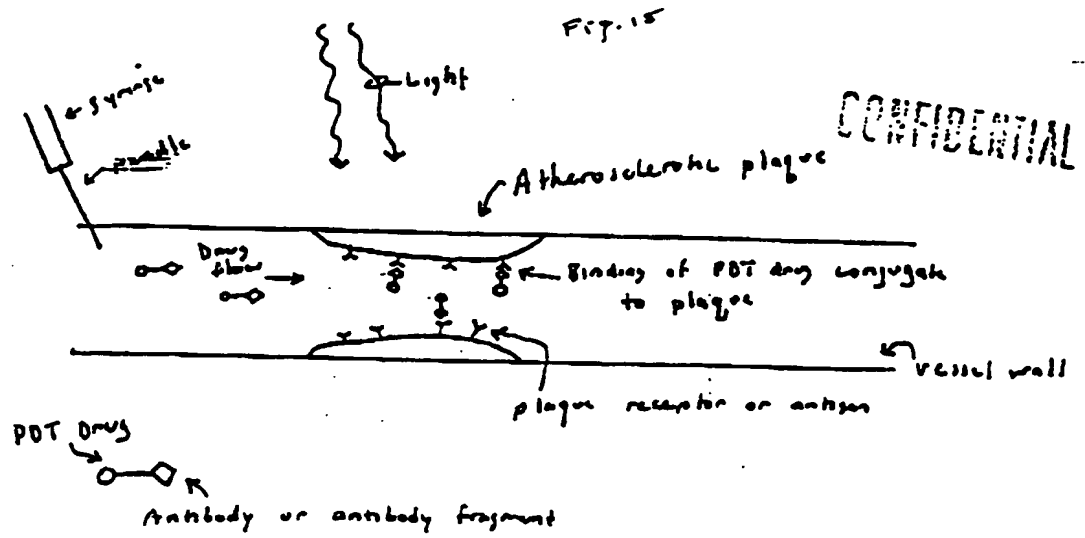 Fig. 15
Light
Syringe
needle
CONFIDENTIAL
Atherosclerotic plaque
Drug
flow
Binding of PDT drug conjugate
to plaque
vessel wall
plaque receptor or antigen
PDT Drug
Antibody or antibody fragment